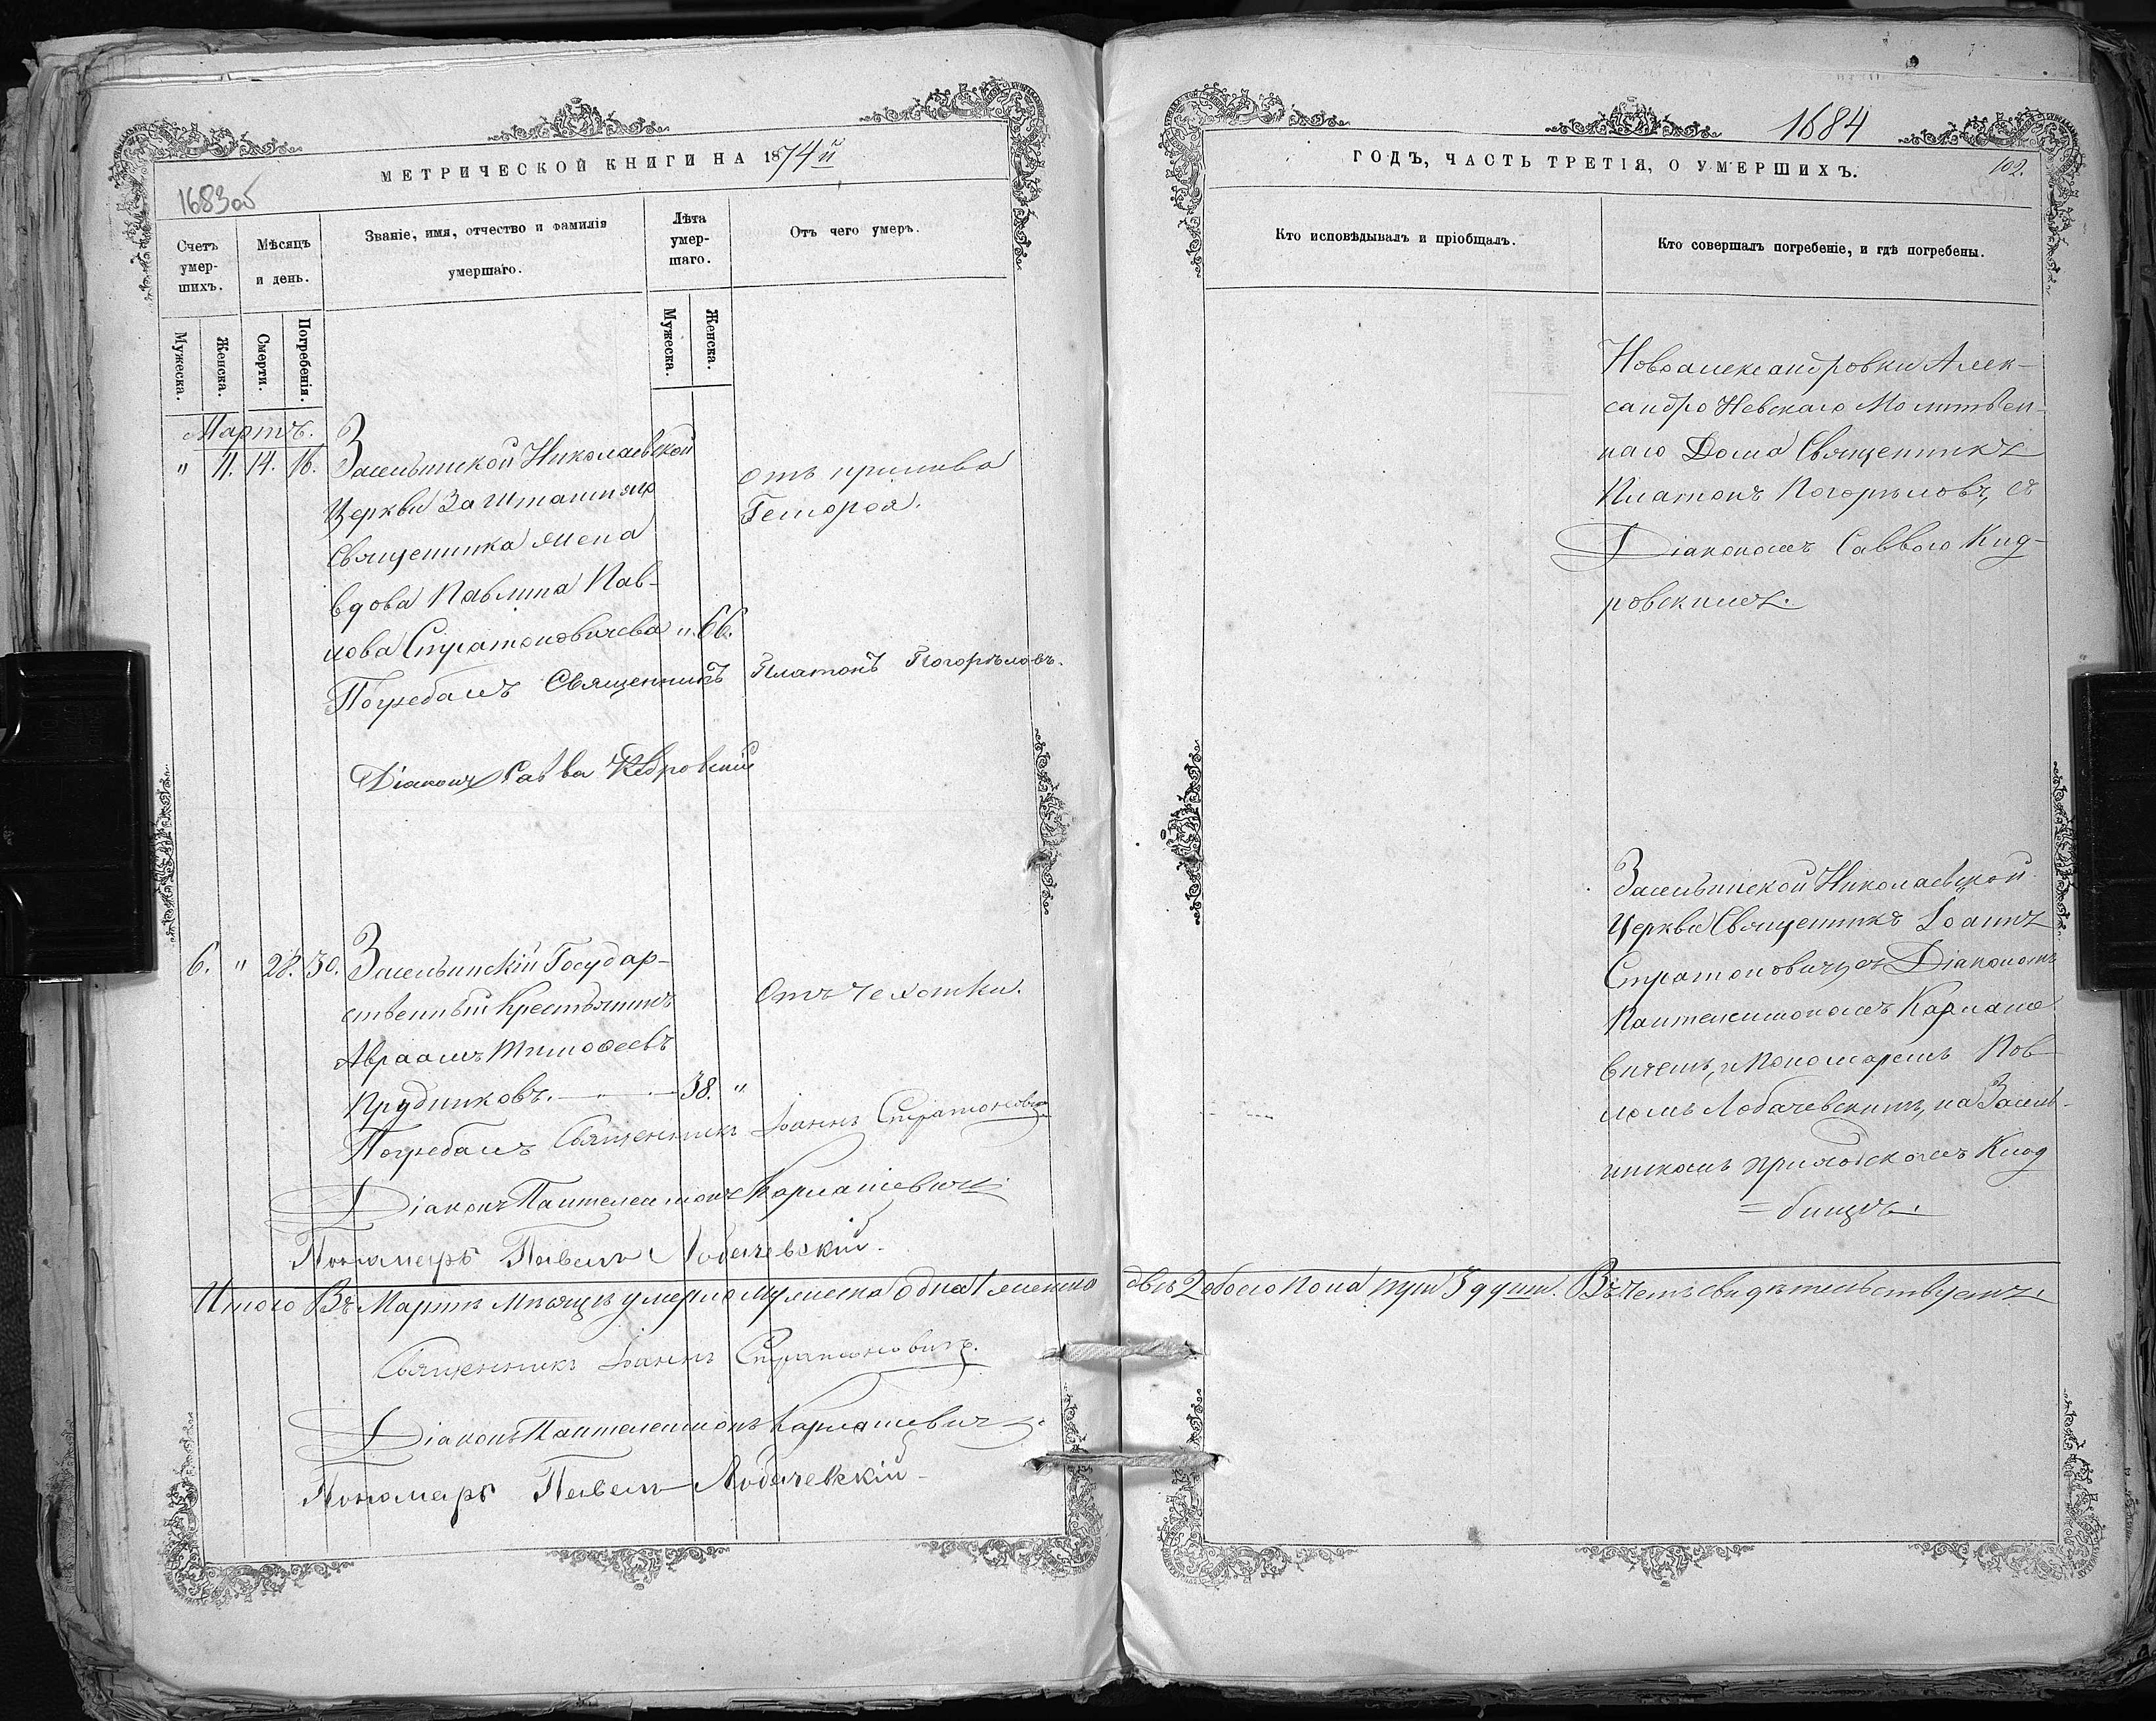 МЕТРИЧЕСКОЙ КНИГИ НА 1874й
1683об
Счетъ умер-шихъ.
Мѣсяцъ и день.
Званіе, имя, отчество и фамилія умершаго.
Лѣта умер-шаго.
Отъ чего умеръ.
Мужеска.
Женска.
Смерти.
Погребенія.
Мужеска.
Женска.
Мартъ.
" 4. 14. 16. Засельинской Николаевской
Церкви Заштатняго
Священника жена
вдова Павлина Пав-
лова Стратоновичева ". 66.
отъ прилива
Гемороя.
Погребалъ Священникъ Платонъ Погорѣловъ.
Діаконъ Савва Кедровскій
6. " 28. 30. Засельинскій Государ-
ственный Крестьянинъ
Авраамъ Тимоѳеевъ
Прудниковъ. 38. "
Отъ чехотки.
Погребалъ Священникъ Іоаннъ Стратоновичъ
Діаконъ Пантелеимонъ Карпашевичъ
Пономарь Павелъ Лобачевскій.
Итого Въ Мартѣ мѣсяцѣ умерло мужеска одна 1 женска
Священникъ Іоаннъ Стратоновичъ.
Діаконъ Пантелеимонъ Карпашевичъ.
Пономарь Павелъ Лобачевскій
1684
ГОДЪ, ЧАСТЬ ТРЕТІЯ, О УМЕРШИХЪ.
102.
Кто исповѣдывалъ и пріобщалъ.
Кто совершалъ погребеніе, и гдѣ погребены.
Новоалександровки Алек-
сандро Невскаго Молитвен-
наго Дома Священникъ
Платонъ Погорѣловъ, съ
Діакономъ Саввою Кид-
ровскимъ.
Засельинской Николаевской
Церкви Священникъ Іоаннъ
Стратоновичъ, съ Діакономъ
Пантелеимономъ Карпаше
вичемъ, и Пономаремъ Пав-
ломъ Лобачевскимъ, на Засель-
инскомъ приходскомъ Клад
=бищѣ.
двѣ 2 обоего пола три 3 души. Въ чемъ свидѣтельствуемъ: